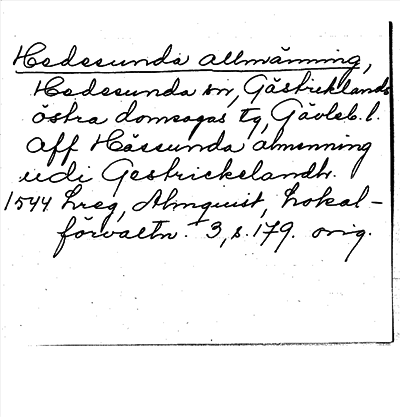 Hedesunda allmänning,
Hedesunda sn, Gästriklands
östra domsagas tg, Gävleb. l.
Aff Hässunda almenning
udi Gestrickelandh.
1544 Lreg, Almquist, Lokal-
förvaltn. 3, s. 179. orig.